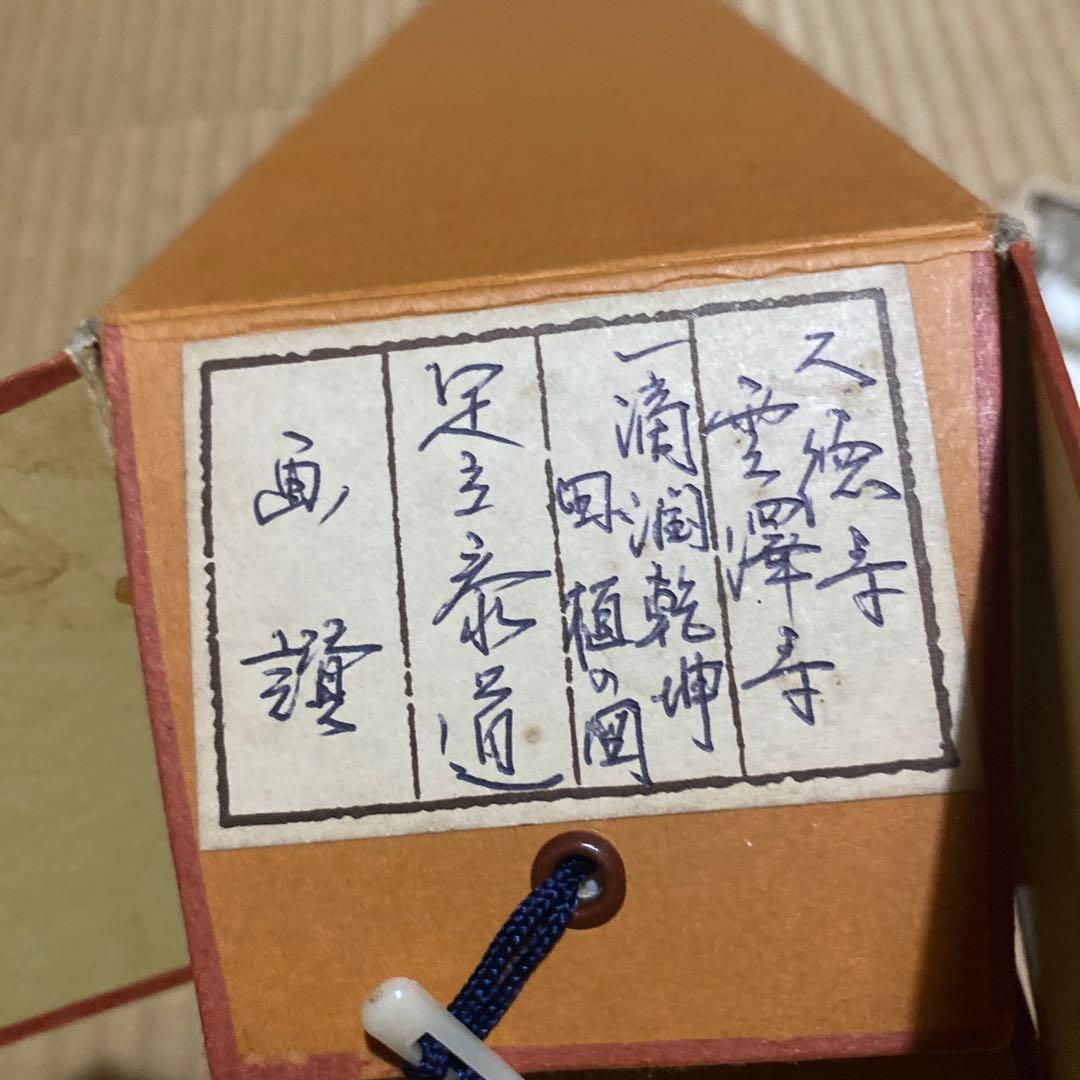 大徳寺
雲澤寺
一滴潤乾坤
田植の図
足立泰道
画讃